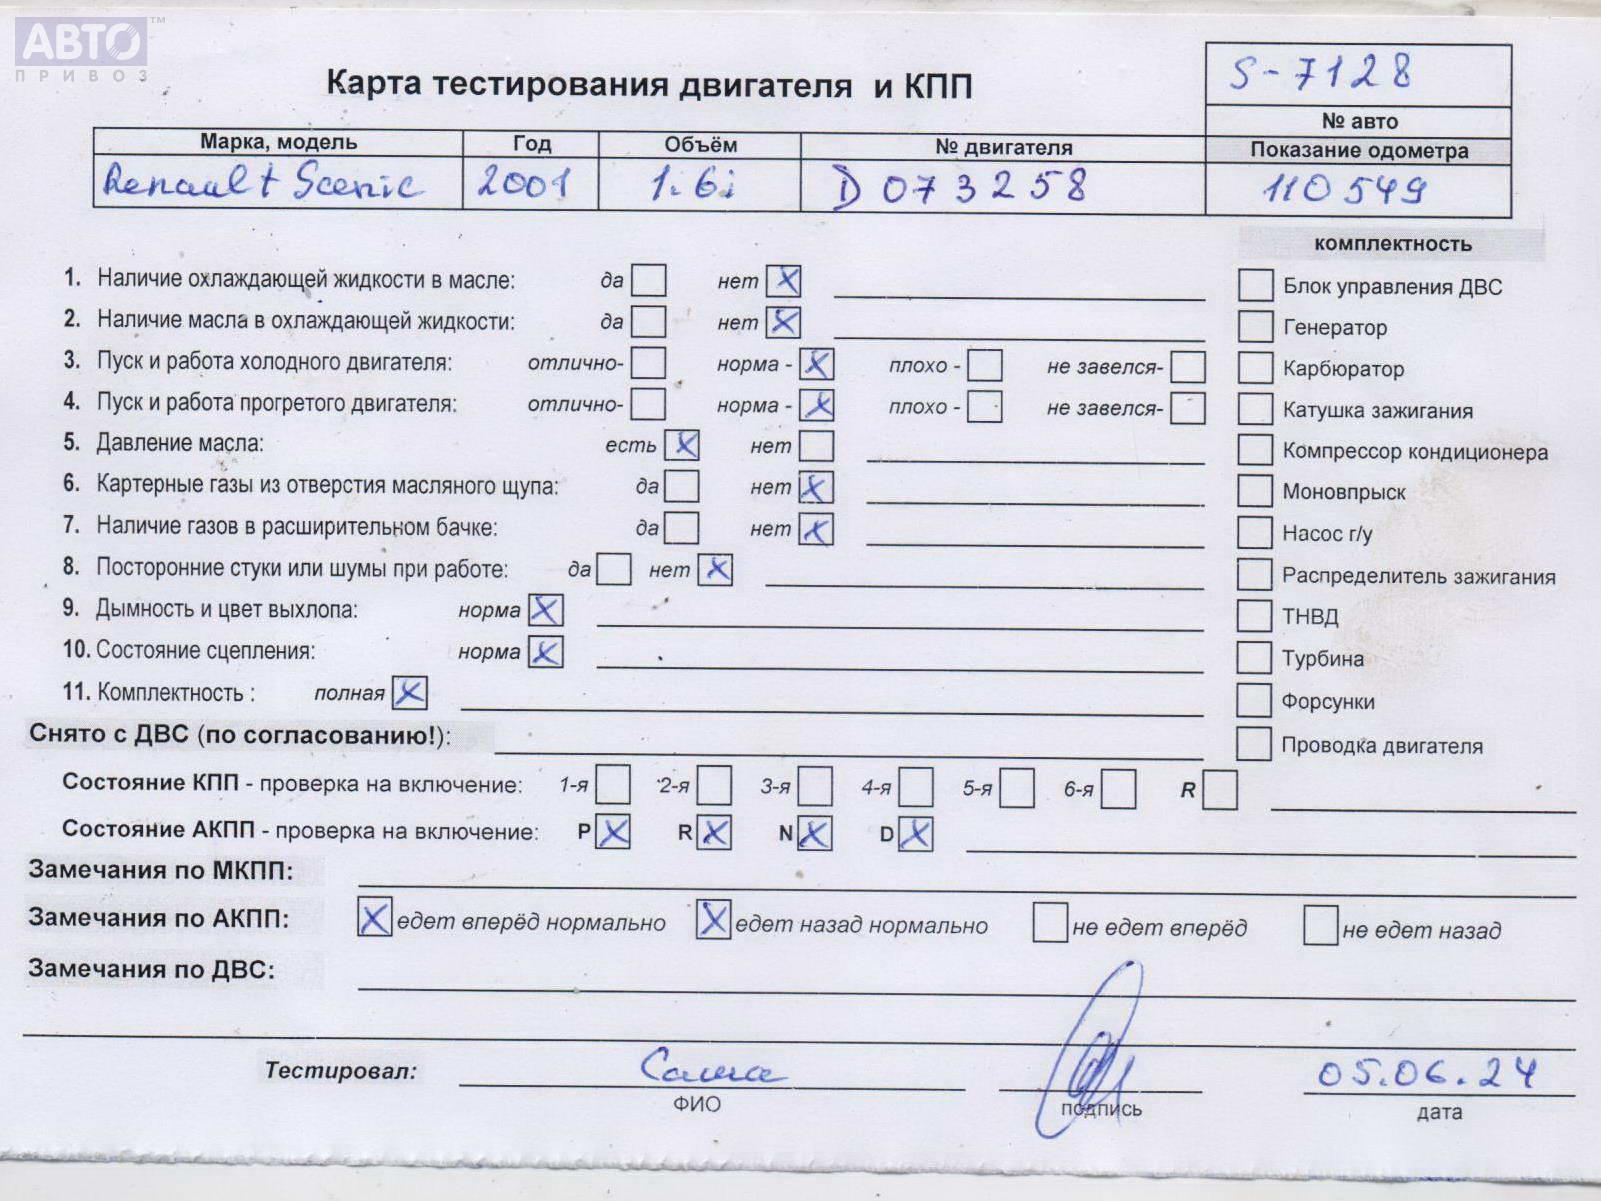 АВТО™
ПРИВОЗ
Карта тестирования двигателя и КПП
S-7128
№ авто
Марка, модель Год Объём № двигателя Показание одометра
Renault Scenic 2001 1.6i D073258 110549
комплектность
1. Наличие охлаждающей жидкости в масле: да нет X
Блок управления ДВС
2. Наличие масла в охлаждающей жидкости: да нет X
Генератор
3. Пуск и работа холодного двигателя: отлично- норма - X плохо - не завелся-
Карбюратор
4. Пуск и работа прогретого двигателя: отлично- норма - X плохо - не завелся-
Катушка зажигания
5. Давление масла: есть X нет
Компрессор кондиционера
6. Картерные газы из отверстия масляного щупа: да нет X
Моновпрыск
7. Наличие газов в расширительном бачке: да нет X
Насос г/у
8. Посторонние стуки или шумы при работе: да нет X
Распределитель зажигания
9. Дымность и цвет выхлопа: норма X
ТНВД
10. Состояние сцепления: норма X
Турбина
11. Комплектность : полная X
Форсунки
Снято с ДВС (по согласованию!):
Проводка двигателя
Состояние КПП - проверка на включение: 1-я 2-я 3-я 4-я 5-я 6-я R
Состояние АКПП - проверка на включение: P X R X N X D X
Замечания по МКПП:
Замечания по АКПП: X едет вперёд нормально X едет назад нормально не едет вперёд не едет назад
Замечания по ДВС:
Тестировал: Саша 05.06.24
ФИО подпись дата